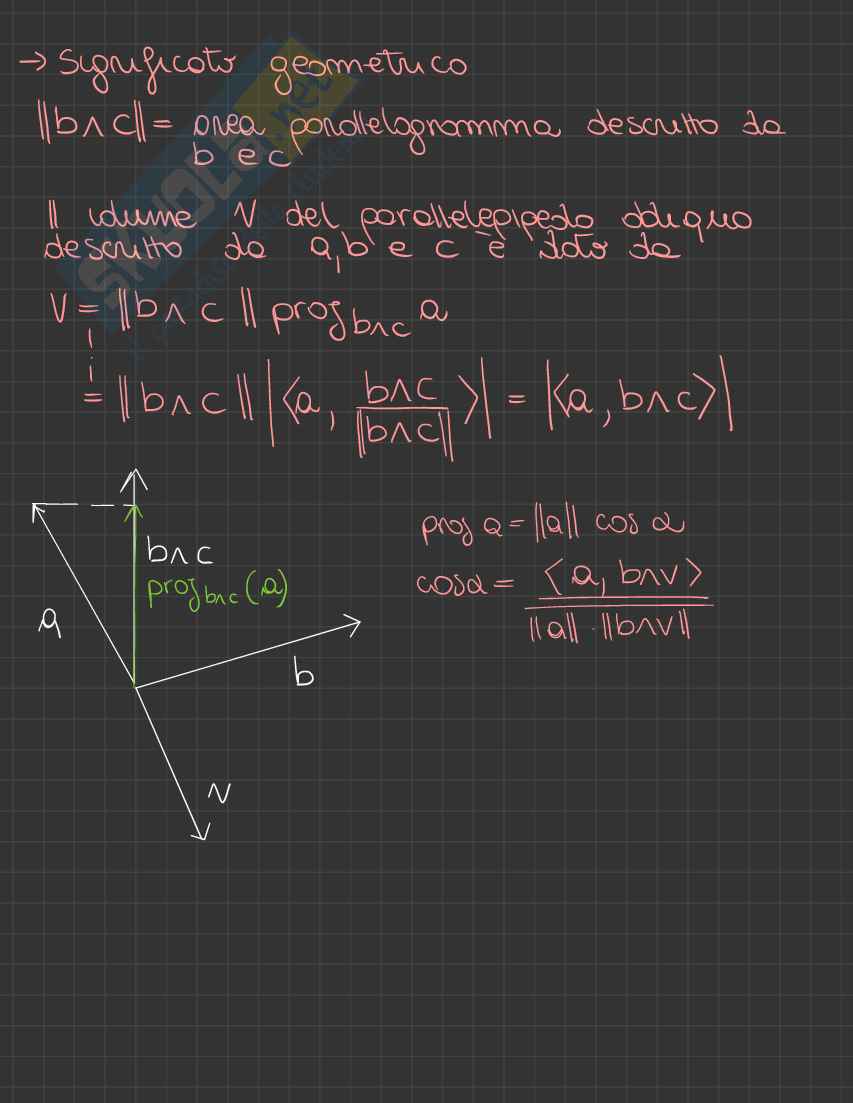 → Significato geometrico
||b∧c|| = area parallelogramma descritto da
b e c
Il volume V del parallelepipedo obliquo
descritto da a, b e c è dato da
V = ||b∧c|| proj_{b∧c} a
= ||b∧c|| |⟨a, b∧c / ||b∧c||⟩| = |⟨a, b∧c⟩|
b∧c
proj_{b∧c}(a)
a
b
v
proj a = ||a|| cos α
cos α = ⟨a, b∧v⟩ / ||a|| · ||b∧v||
SKUOLA.net